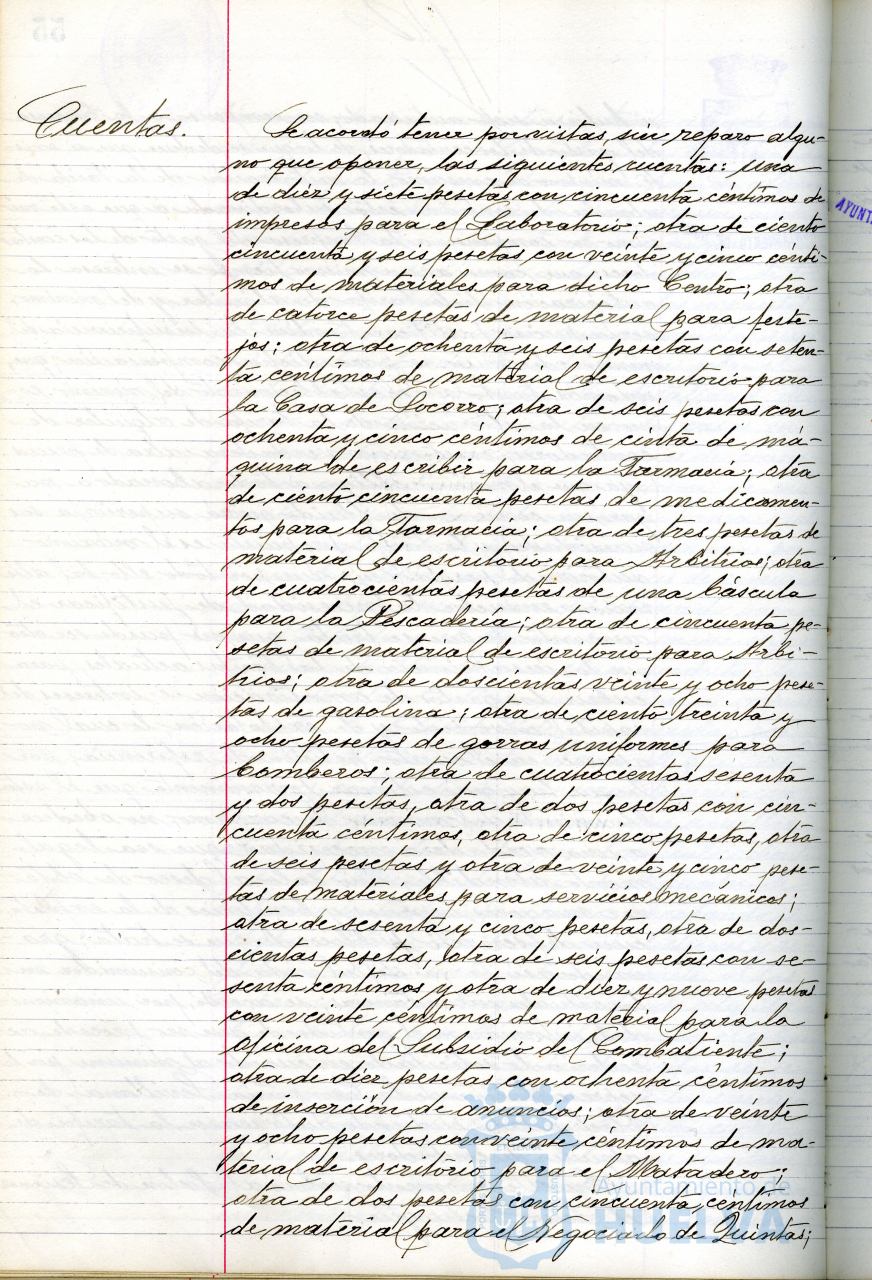 Cuentas.
Se acordó tener por vistas, sin reparo algu-
no que oponer, las siguientes cuentas: una
de diez y siete pesetas con cincuenta céntimos de
impresos para el Laboratorio; otra de ciento
cincuenta y seis pesetas con veinte y cinco cénti-
mos de materiales para dicho Centro; otra
de catorce pesetas de material para feste-
jos; otra de ochenta y seis pesetas con seten-
ta céntimos de material de escritorio para
la Casa de Socorro; otra de seis pesetas con
ochenta y cinco céntimos de cinta de má-
quina de escribir para la Farmacia; otra
de ciento cincuenta pesetas de medicamen-
tos para la Farmacia; otra de tres pesetas de
material de escritorio para Arbitrios; otra
de cuatrocientas pesetas de una báscula
para la Pescadería; otra de cincuenta pe-
setas de material de escritorio para Arbi-
trios; otra de doscientas veinte y ocho pese-
tas de gasolina; otra de ciento treinta y
ocho pesetas de gorras uniformes para
Bomberos; otra de cuatrocientas sesenta
y dos pesetas, otra de dos pesetas con cin-
cuenta céntimos, otra de cinco pesetas, otra
de seis pesetas y otra de veinte y cinco pese-
tas de materiales para servicios mecánicos;
otra de sesenta y cinco pesetas, otra de dos-
cientas pesetas, otra de seis pesetas con se-
senta céntimos y otra de diez y nueve pesetas
con veinte céntimos de material para la
Oficina del Subsidio del Combatiente;
otra de diez pesetas con ochenta céntimos
de inserción de anuncios; otra de veinte
y ocho pesetas con veinte céntimos de ma-
terial de escritorio para el Matadero;
otra de dos pesetas con cincuenta céntimos
de material para el Negociado de Quintas;
AYUNT
Ayuntamiento de
HUELVA